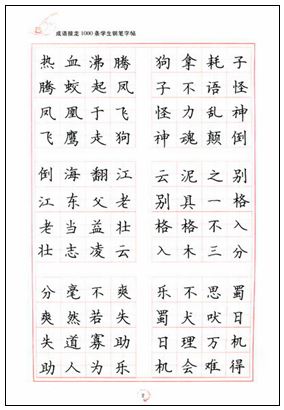 成语接龙1000条学生钢笔字帖
热血沸腾
腾蛟起凤
凤凰于飞
飞鹰走狗
狗拿耗子
子不语怪
怪力乱神
神魂颠倒
倒海翻江
江东父老
老当益壮
壮志凌云
云泥之别
别具一格
格格不入
入木三分
分毫不爽
爽然若失
失道寡助
助人为乐
乐不思蜀
蜀犬吠日
日理万机
机会难得